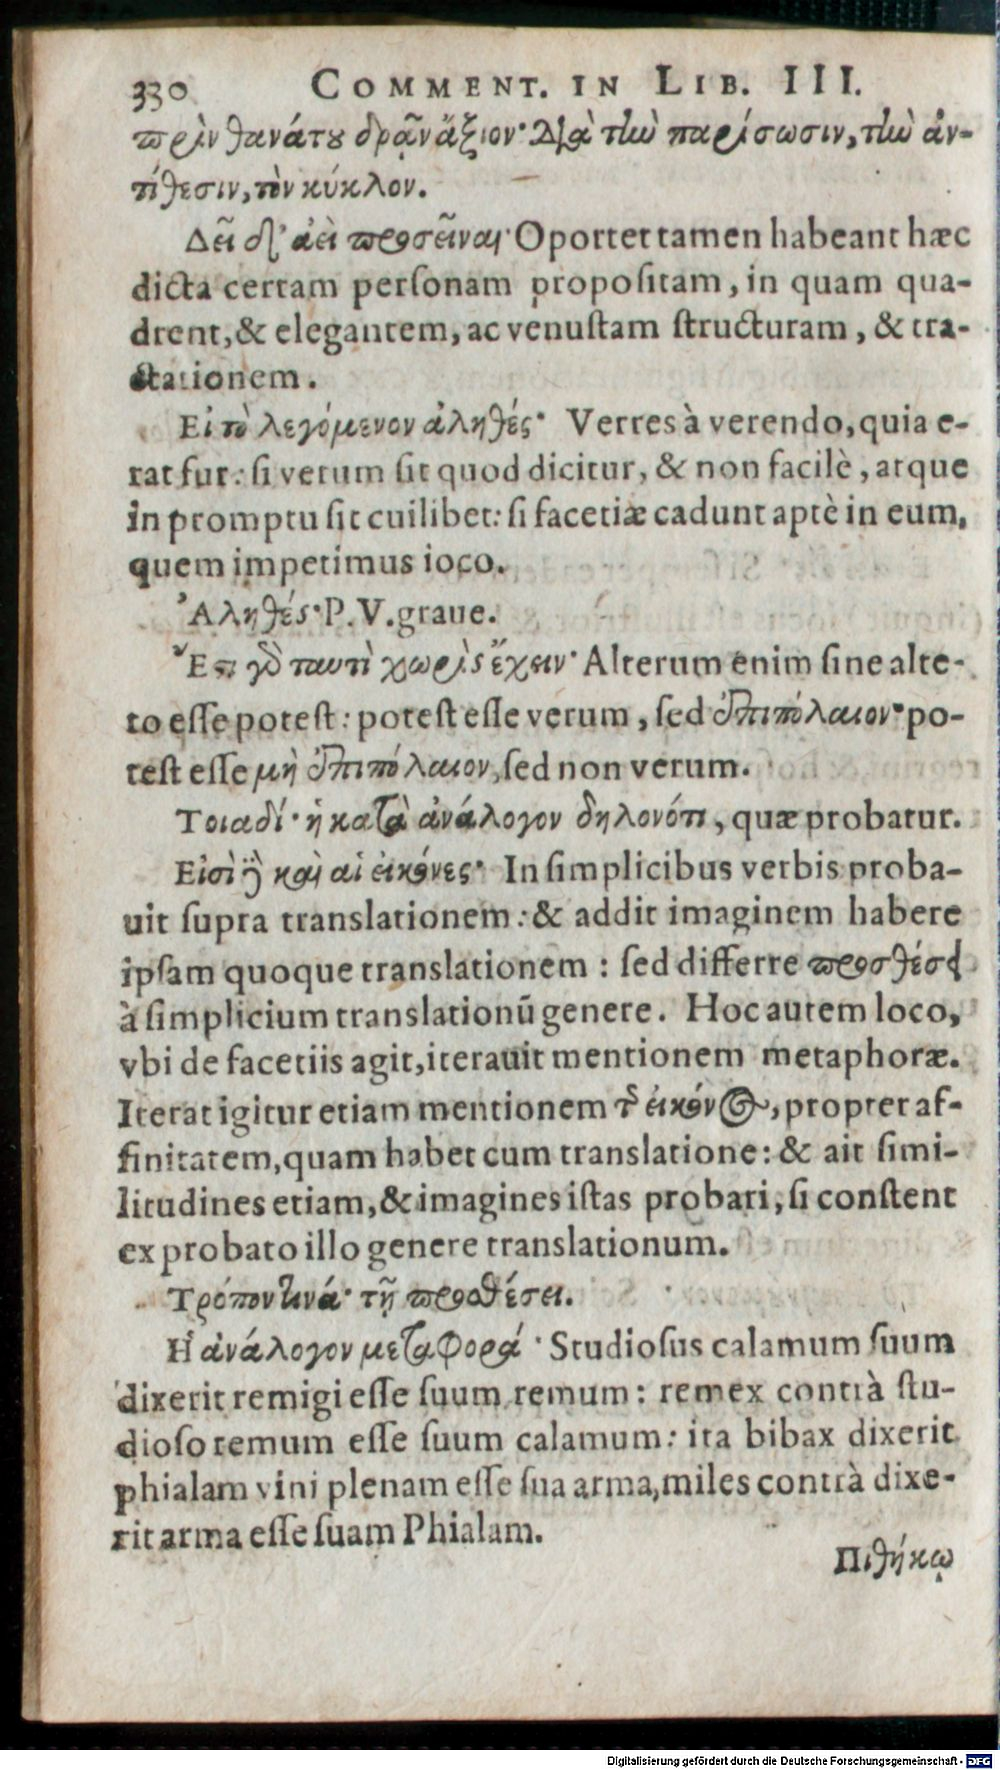 330 COMMENT. IN LIB. III.
πρὶν θανάτου δρᾷν ἄξιον· Διὰ τὴν παρίσωσιν, τὴν ἀν-
τίθεσιν, τὸν κύκλον.
Δεῖ δ' ἀεὶ προσεῖναι· Oportet tamen habeant hæc
dicta certam personam propositam, in quam qua-
drent, & elegantem, ac venustam structuram, & tra-
ctationem.
Εἰ τὸ λεγόμενον ἀληθές· Verres à verendo, quia e-
rat fur: si verum sit quod dicitur, & non facilè, atque
in promptu sit cuilibet: si facetiæ cadunt aptè in eum,
quem impetimus ioco.
Ἀληθές· P. V. graue.
Ἔστι γὸ ταυτὶ χωρὶς ἔχειν· Alterum enim sine alte-
ro esse potest: potest esse verum, sed ἐπιπόλαιον· po-
test esse μὴ ἐπιπόλαιον, sed non verum.
Τοιαδί· ἡ κατὰ ἀνάλογον δηλονότι, quæ probatur.
Εἰσὶ δὲ καὶ αἱ εἰκόνες· In simplicibus verbis proba-
uit supra translationem: & addit imaginem habere
ipsam quoque translationem: sed differre προσθέσει
à simplicium translationū genere. Hoc autem loco,
vbi de facetiis agit, iterauit mentionem metaphoræ.
Iterat igitur etiam mentionem τῆς εἰκόνος, propter af-
finitatem, quam habet cum translatione: & ait simi-
litudines etiam, & imagines istas probari, si constent
ex probato illo genere translationum.
Τρόπον τινά· τῇ προθέσει.
Ἡ ἀνάλογον μεταφορά· Studiosus calamum suum
dixerit remigi esse suum remum: remex contrà stu-
dioso remum esse suum calamum: ita bibax dixerit
phialam vini plenam esse sua arma, miles contrà dixe-
rit arma esse suam Phialam.
Πιθήκῳ
Digitalisierung gefördert durch die Deutsche Forschungsgemeinschaft - DFG